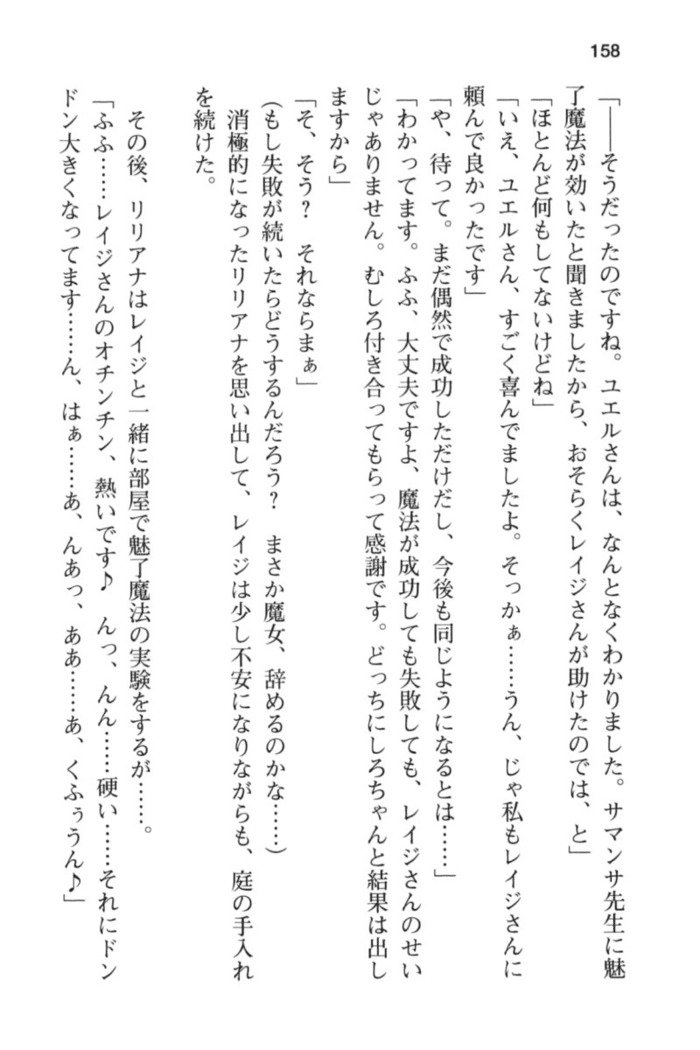 158
「――そうだったのですね。ユエルさんは、なんとなくわかりました。サマンサ先生に魅
了魔法が効いたと聞きましたから、おそらくレイジさんが助けたのでは、と」
「ほとんど何もしてないけどね」
「いえ、ユエルさん、すごく喜んでましたよ。そっかぁ……うん、じゃ私もレイジさんに
頼んで良かったです」
「や、待って。まだ偶然で成功しただけだし、今後も同じようになるとは……」
「わかってます。ふふ、大丈夫ですよ、魔法が成功しても失敗しても、レイジさんのせい
じゃありません。むしろ付き合ってもらって感謝です。どっちにしろちゃんと結果は出し
ますから」
「そ、そう？　それならまぁ」
（もし失敗が続いたらどうするんだろう？　まさか魔女、辞めるのかな……）
　消極的になったリリアナを思い出して、レイジは少し不安になりながらも、庭の手入れ
を続けた。
　その後、リリアナはレイジと一緒に部屋で魅了魔法の実験をするが……。
「ふふ……レイジさんのオチンチン、熱いです♪　んっ、んん……硬い……それにドン
ドン大きくなってます……ん、はぁ……あ、んあっ、ああ……あ、くふぅうん♪」